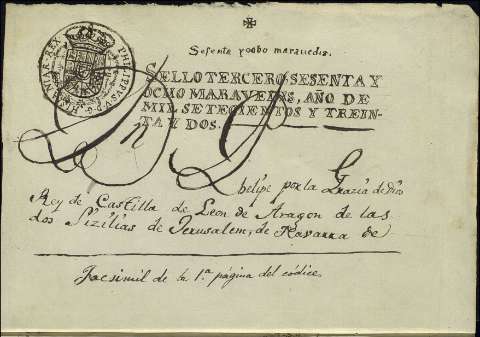 Sesenta y ocho maravedis.
PHILIPPUS V D G HISPANIAR REX
SELLO TERCERO, SESENTA Y
OCHO MARAVEDIS, AÑO DE
MIL SETECIENTOS Y TREIN-
TA Y DOS.
Dn Phelipe por la Grazia de Dios
Rey de Castilla de Leon de Aragon de las
dos Sizilias de Jerusalem, de Navarra de
Facsimil de la 1.ª página del códice.